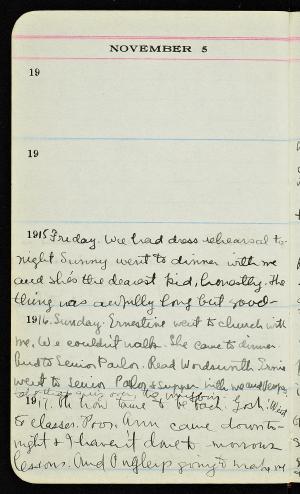 NOVEMBER 5
19
19
1915 Friday. We had dress rehearsal to-
night. Sunny went to dinner with me
and she's the dearest kid, honestly. The
thing was awfully long but good-
1916. Sunday. Ernestine went to church with
me. We couldn't walk. She came to dinner
to Senior Parlor. Read Wordsworth. Ernie
went to Senior Parlor & supper with me and
1917. Oh how tame to be back. Gosh! Went
to classes. Poor Ann came down to-
night & I haven't done to-morrows
lessons. And I'm going to make my